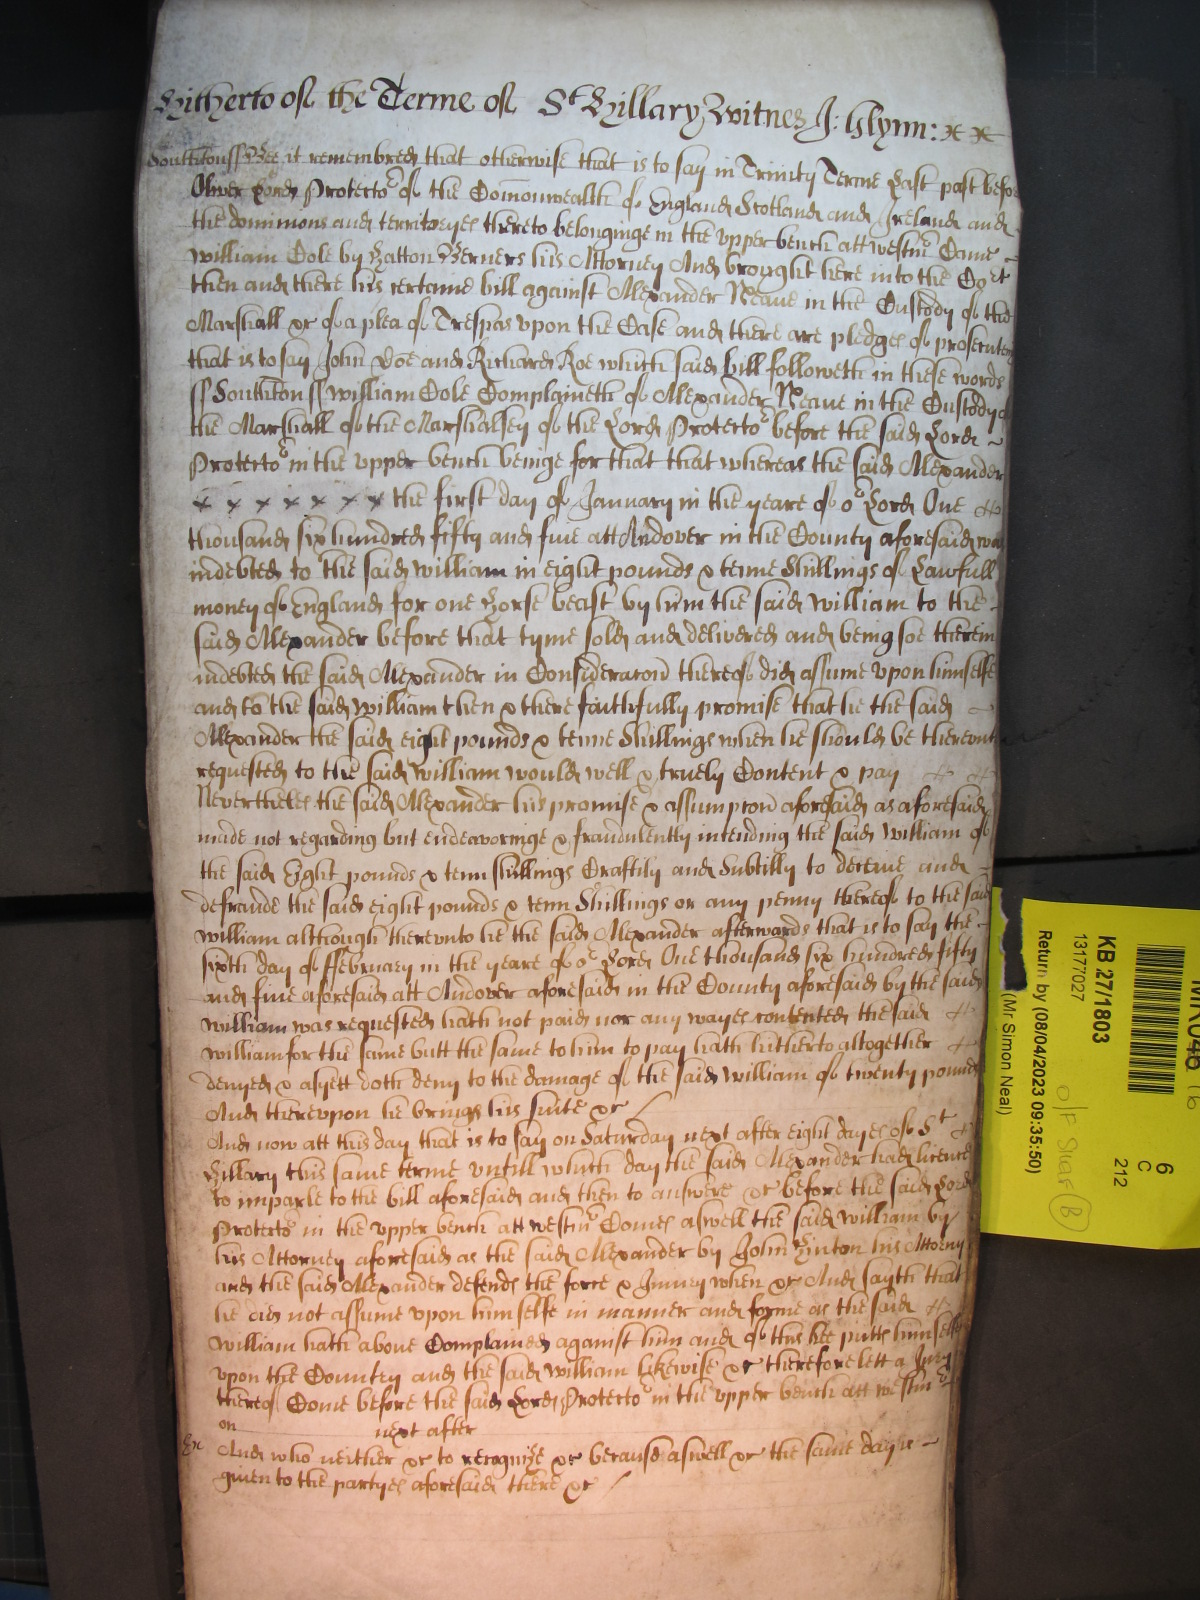 Hitherto of the Terme of St Hillary Witnes J: Glynn:
Southton ss Bee it remembred that otherwise that is to say in Trinity Terme Last past before
Oliver Lord Protector of the Comonwealth of England Scotland and Ireland and
the dominions and territoryes thereto belonginge in the vpper bench att westmr Came
William Cole by Hatton Berners his Attorney And brought here into the Cort
then and there his certaine bill against Alexander Neave in the Custody of the
Marshall &c of a plea of Trespas vpon the Case and there are pledges of prosecuten
that is to say John Doe and Richard Roe which said bill followeth in these words
ss Southton ss William Cole Complaineth of Alexander Neave in the Custody of
the Marshall of the Marshalsey of the Lord Protector before the said Lord
Protector in the vpper bench beinge for that that whereas the said Alexander
the first day of January in the yeare of or Lord One
thousand six hundred fifty and fiue att Andover in the County aforesaid was
indebted to the said William in eight pounds & tenne Shillings of Lawfull
money of England for one Horse beast by him the said William to the
said Alexander before that tyme sold and delivered and being soe therein
indebted the said Alexander in Consideracon thereof did assume vpon himselfe
and to the said William then & there faithfully promise that he the said
Alexander the said eight pounds & tenne Shillings when he should be therevnto
requested to the said William would well & truely Content & pay
Neverthelesse the said Alexander his promise & assumpcon aforesaid as aforesaid
made not regarding but endeavoringe & fraudulently intending the said William of
the said Eight pounds & tenn shillings Craftily and Subtilly to deceive and
defraude the said eight pounds & tenn Shillings or any penny thereof to the said
William although therevnto he the said Alexander afterwards that is to say the
sixth day of ffebruary in the yeare of or Lord One thousand six hundred fifty
and fiue aforesaid att Andover aforesaid in the County aforesaid by the said
William was requested hath not paid nor any wayes contented the said
William for the same butt the same to him to pay hath hitherto altogether
denyed & as yett doth deny to the damage of the said William of twenty pounds
And therevpon he brings his suite &c
And now att this day that is to say on Saturday next after eight dayes of St
Hillary this same terme vntill which day the said Alexander had licence
to imparle to the bill aforesaid and then to answere &c before the said Lord
Protector in the vpper bench att westmr Comes aswell the said William by
his Attorney aforesaid as the said Alexander by John Hinton his Attorny
and the said Alexander defends the force & Iniury when &c And sayth that
he did not assume vpon himselfe in manner and forme as the said
William hath aboue Complained against him and of this hee putts himselfe
vpon the Country and the said William likewise &c therefore lett a Jury
thereof Come before the said Lord Protector in the vpper bench att westmr
on next after
And who neither &c to recognize &c because aswell &c the same day is
giuen to the partyes aforesaid there &c
6
C
212
KB 27/1803
13177027
Return by (08/04/2023 09:35:50)
(Mr Simon Neal)
B